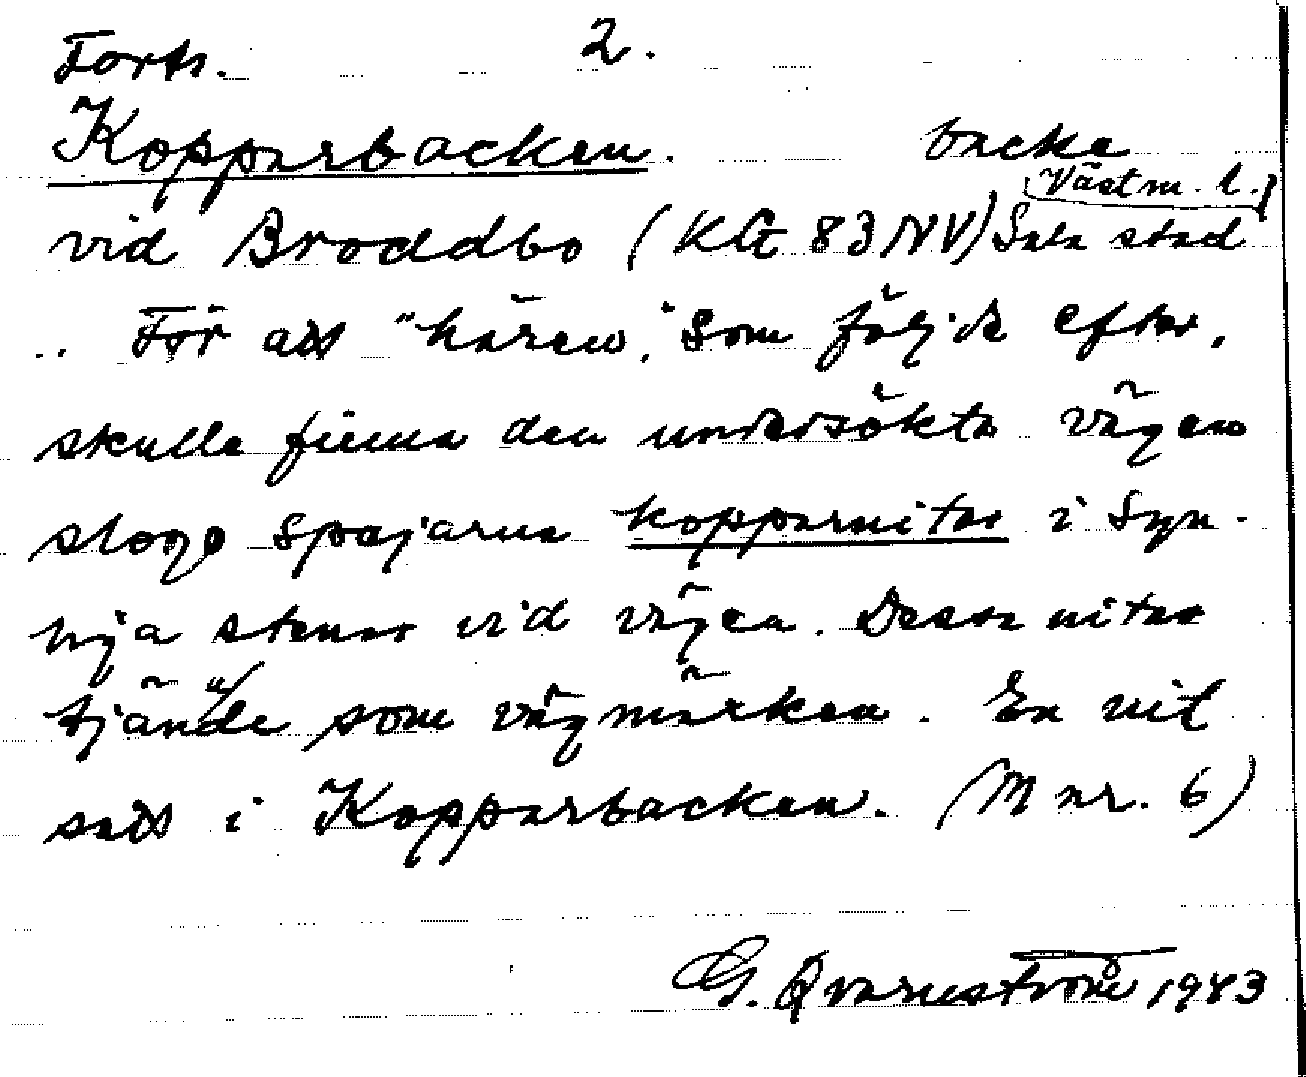 Forts. 2.
Kopparbacken. backe
Västm. l.
vid Broddbo (KG 83 NV) Sala stad
.. För att "hären," som följde efter,
skulle finna den undersökta vägen
slogo spejarna kopparnitar i syn-
liga stenar vid vägen. Dessa nitar
tjänade som vägmärken. En nit
satt i Kopparbacken. (M nr. 6)
G. Qvarnström 1943